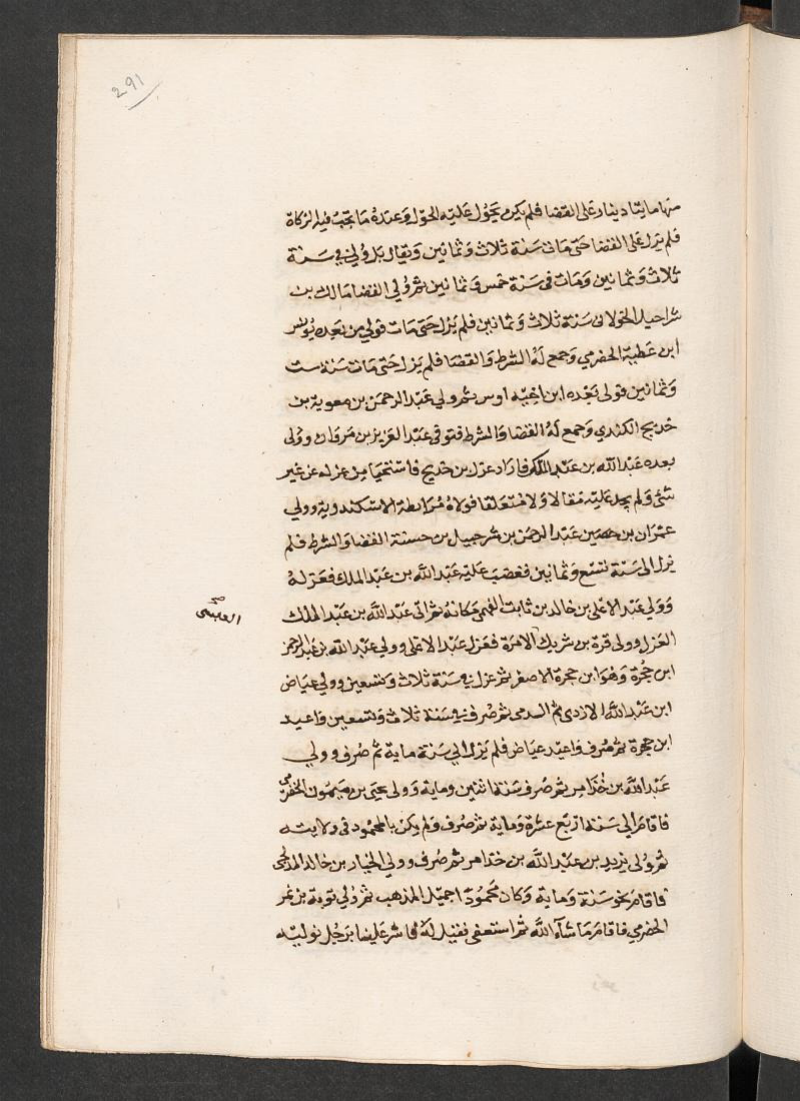 291
منها مايتا دينار على القضا فلم يكن يحول عليه الحول وعنده ما يجب فيه الزكاة
فلم يزل على القضا حتى مات سنة ثلاث وثمانين ويقال بل ولى في سنة
ثلاث وثمانين ومات فى سنة خمس وثمانين ثم ولي القضا مالك بن
شراحيل الخولانى سنة ثلاث وثمانين فلم يزل حتى مات فولي من بعده يونس
ابن عطية الحضرمي وجمع له الشرط والقضا فلم يزل حتى مات سنة ست
وثمانين فولى بعده ابن اخيه اوس ثم ولي عبد الرحمن بن معوية بن
خديج الكندي وجمع له القضا والشرط فتوفى عبد العزيز بن مروان وولى
بعده عبد الله بن عبد الملك فاراد عزل بن خديج فاستحيا من عزله عن غير
شئ ولم يجد عليه مقالا ولا متعلقا فولاه مرابطة الاسكندوية وولي
عمران بن حصين عبد الرحمن بن شرجبيل بن حسنة القضا والشرط فلم
يزل الى سنة تسع وثمانين فغضب عليه عبد الله بن عبد الملك فعزله
وولي عبد الاعلى بن خالد بن ثابت الفهمى مكانه ثم اتى عبد الله بن عبد الملك
العزل وولى قرة بن شريك الامرة فعزل عبد الاعلى وولي عبد الله بن عبد الرحمن
ابن حجرة وهو ابن حجرة الاصغر ثم عزل في سنة ثلاث وتسعين وولي عياض
ابن عبد الله الازدى ثم السدمى ثم صرف في سنة ثلاث وتسعين واعيد
ابن حجرة ثم صرف واعيد عياض فلم يزل الى سنة ماية ثم صرف وولي
عبد الله بن خذامر ثم صرف سنة اثنين وماية وولى يحيى بن ميمون الحضرمى
فاقام الى سنة اربع عشرة وماية ثم صرف ولم يكن بالمحمود فى ولايته
ثم ولى يزيد بن عبد الله بن خذامر ثم صرف وولي الخيار بن خالد المدلجى
فاقام نحو سنة وماية وكان محمودا جميل المذهب ثم ولي توبة بن نمر
الحضرمي فاقام ما شاء الله ثم استعفى فقيل له فاشر علينا برجل نوليه